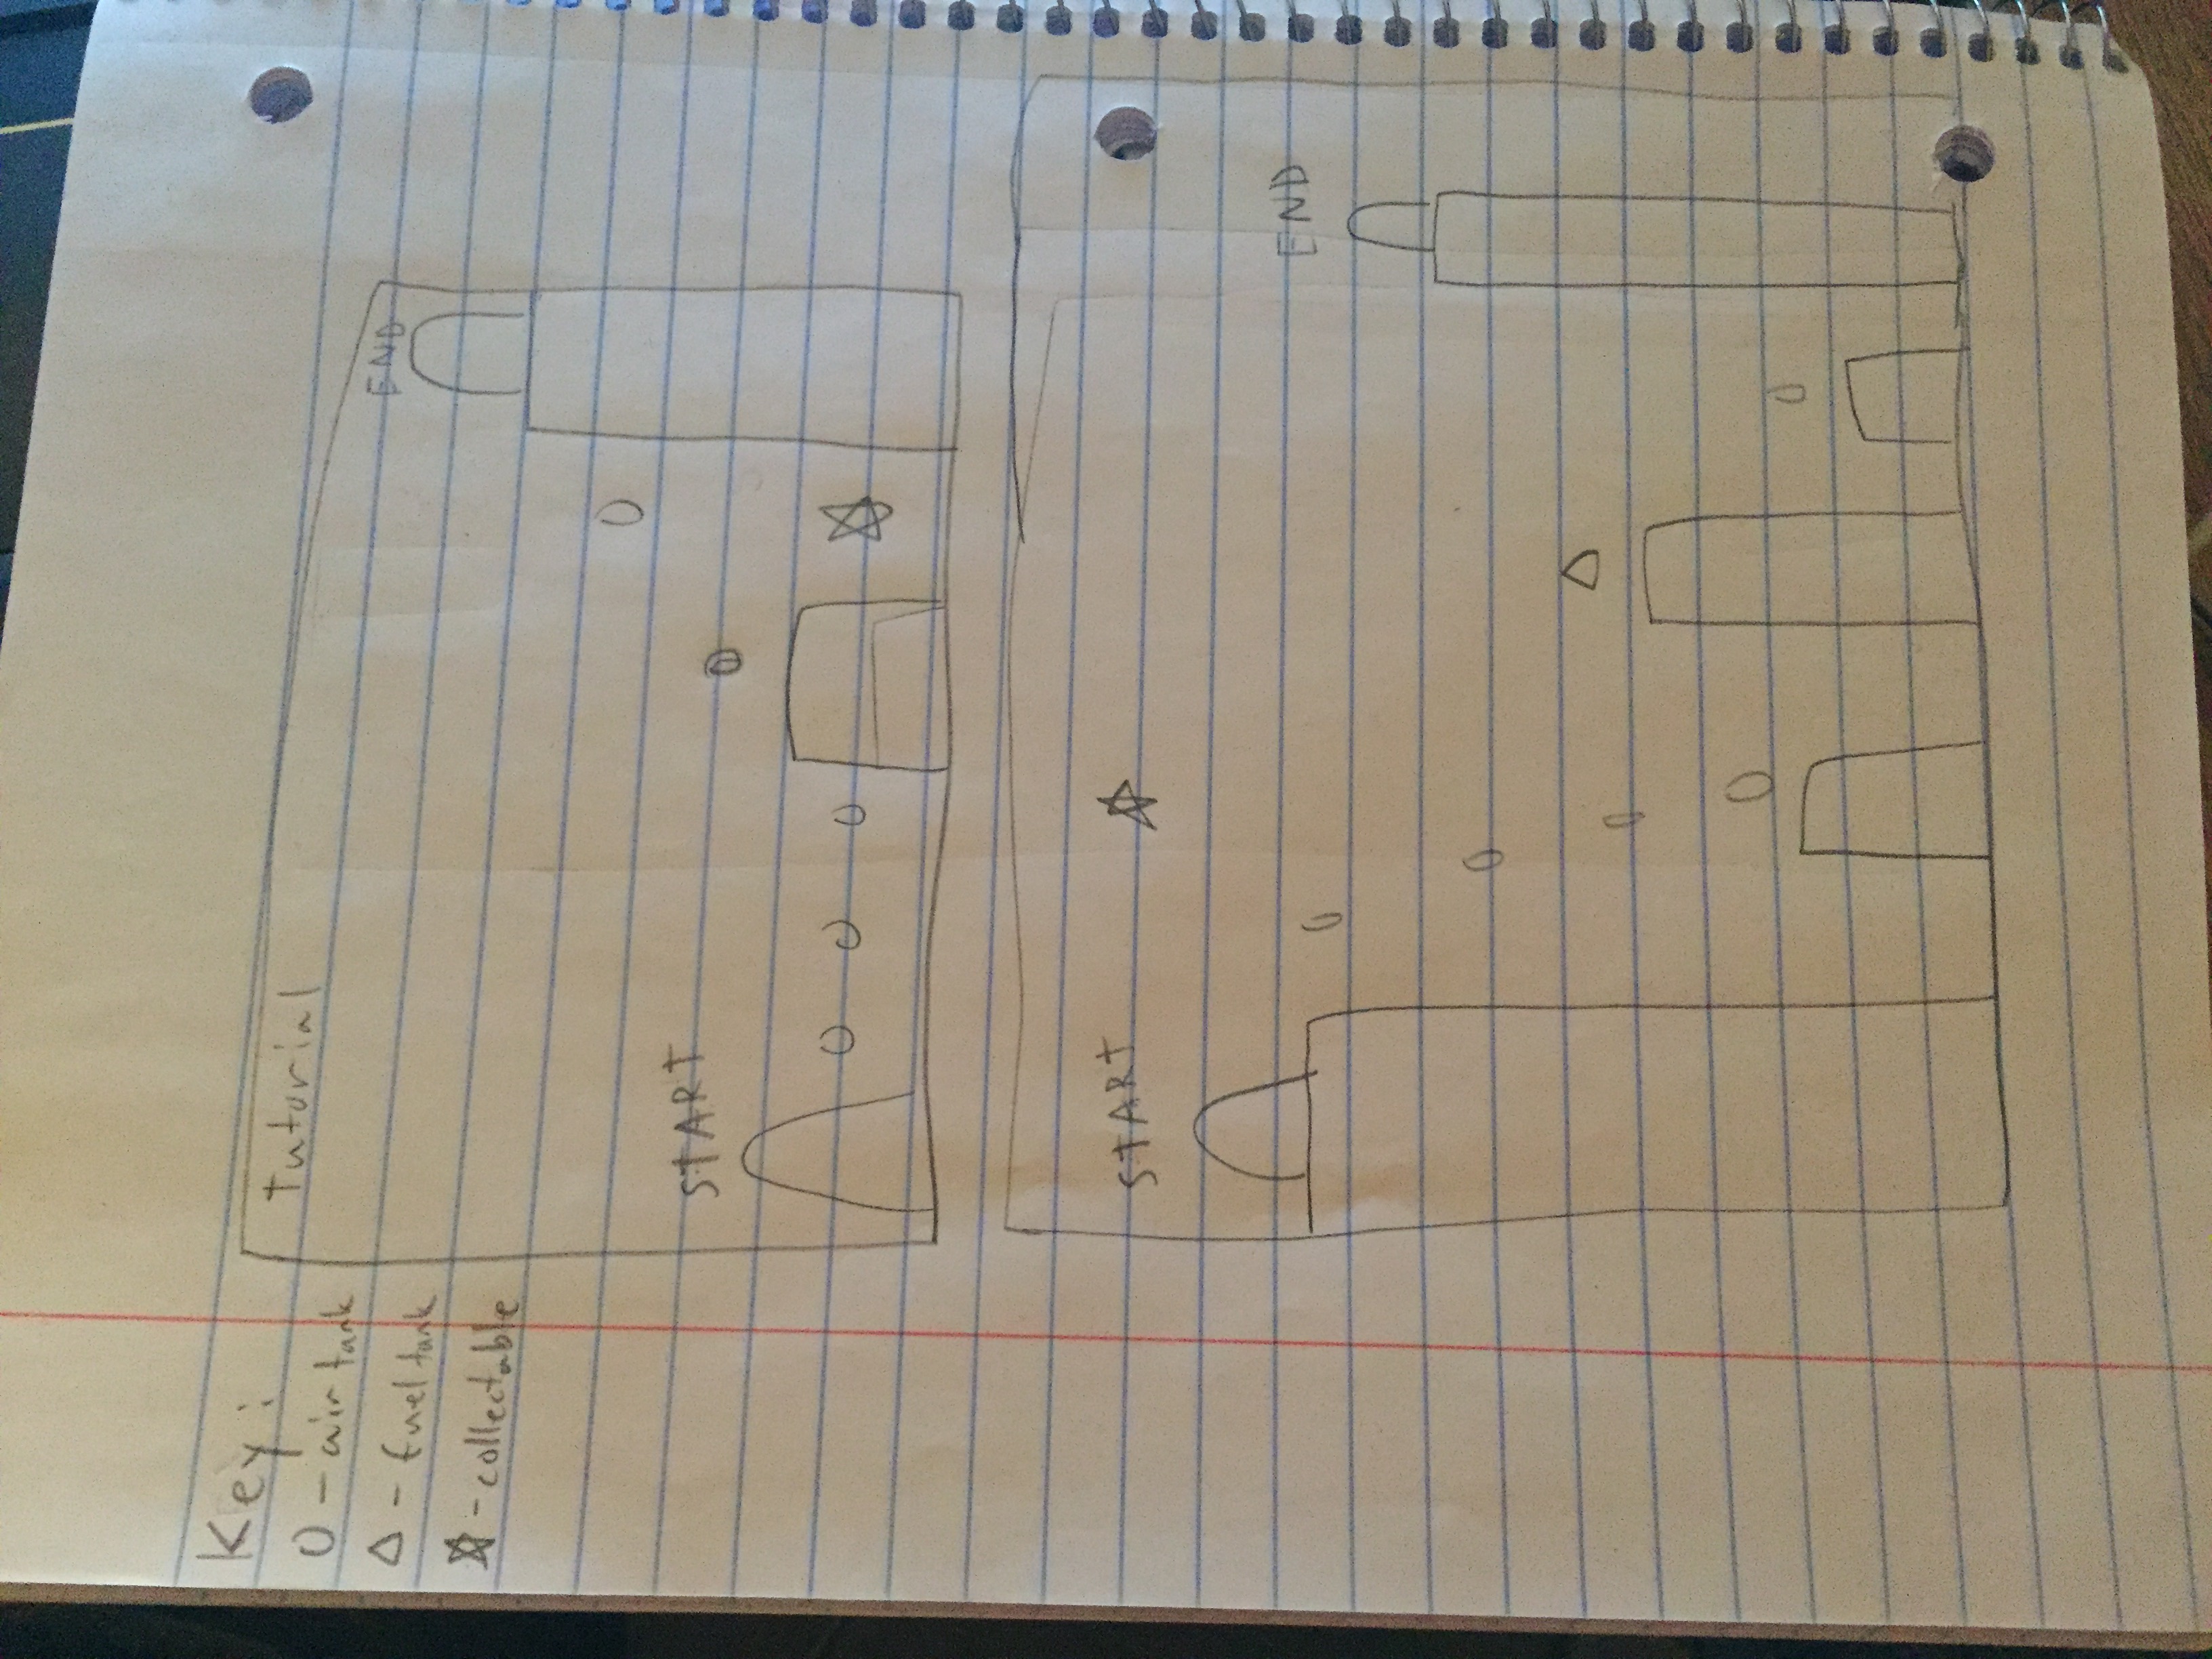 Key:
O - air tank
△ - fuel tank
☆ - collectable
Tutorial
END
START
START
END